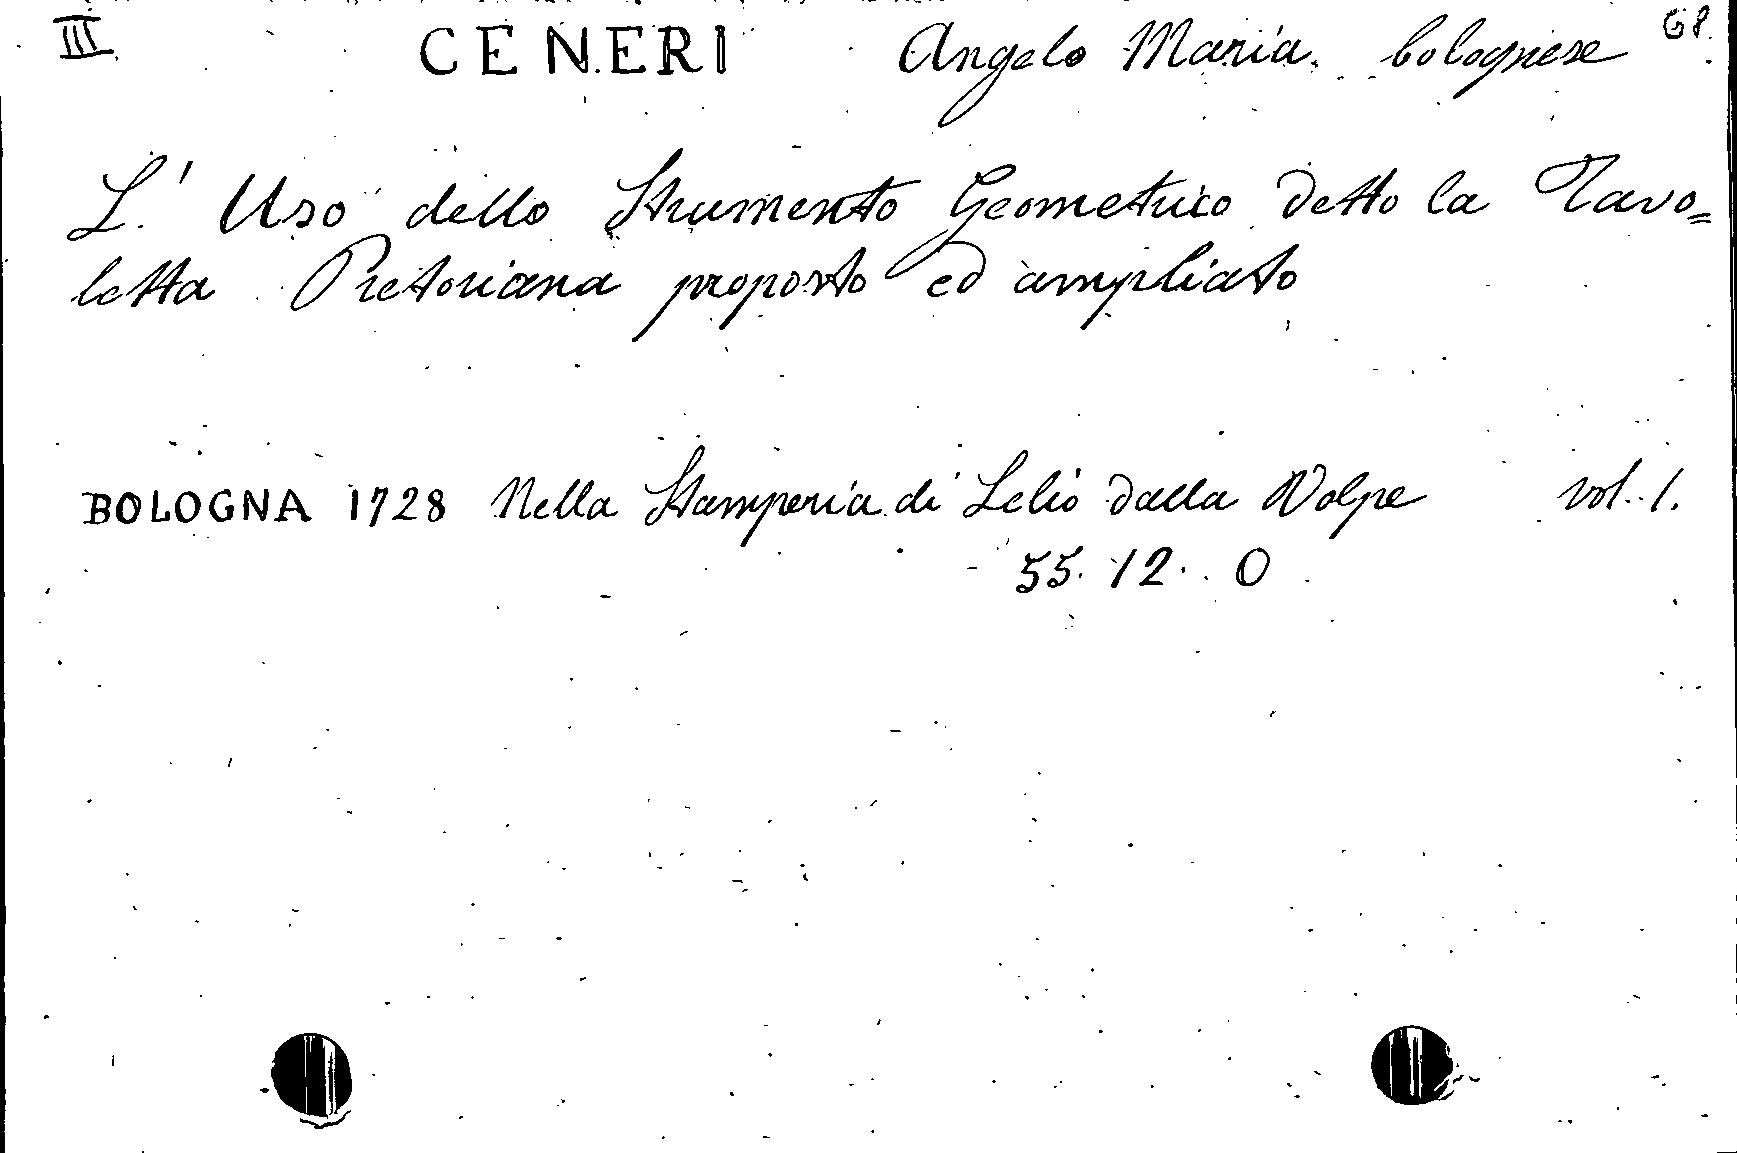 III CENERI Angelo Maria. bolognese 68.
L'Uso dello Strumento Geometrico detto la Tavo=
letta Pretoriana proposto ed ampliato
BOLOGNA 1728 Nella Stamperia di Lelio dalla Volpe vol. 1.
55. 12. O